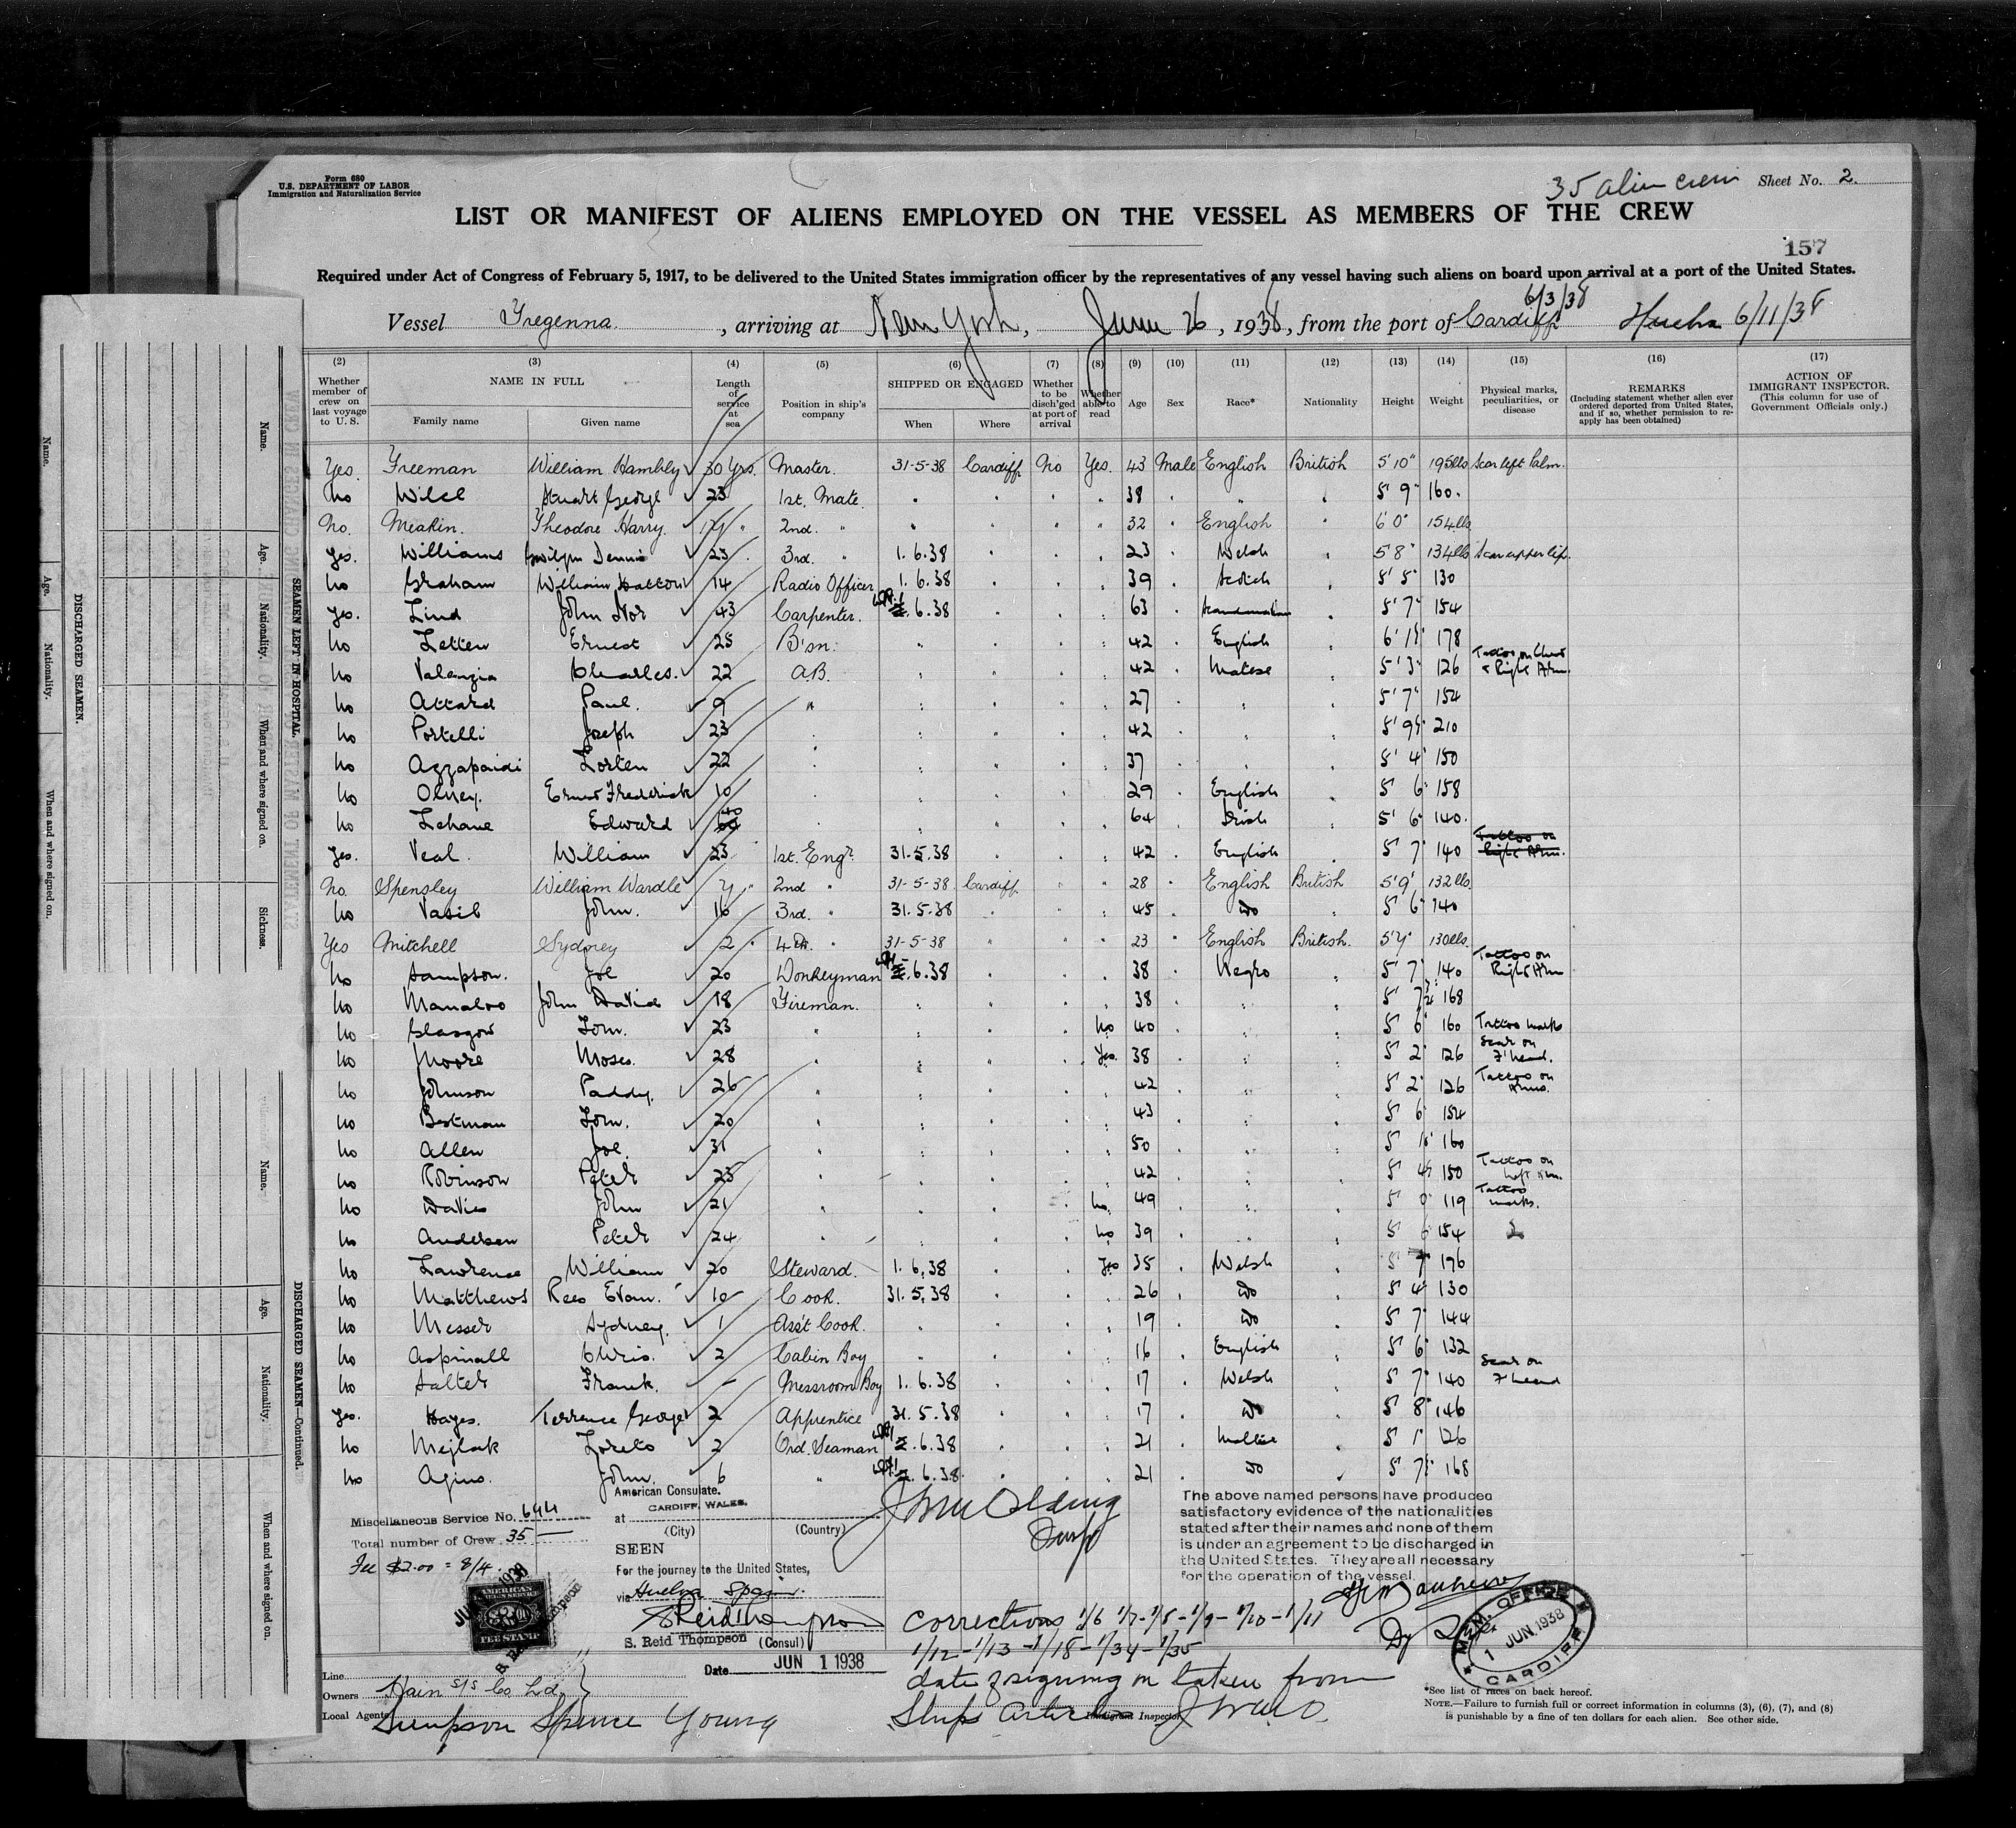 Form 680
U.S. DEPARTMENT OF LABOR
Immigration and Naturalization Service
35 alien crew Sheet No. 2.
LIST OR MANIFEST OF ALIENS EMPLOYED ON THE VESSEL AS MEMBERS OF THE CREW
157
Required under Act of Congress of February 5, 1917, to be delivered to the United States immigration officer by the representatives of any vessel having such aliens on board upon arrival at a port of the United States.
6/3/38
Vessel Tregenna. , arriving at New York, June 26 , 1938, from the port of Cardiff 6/11/38
(2) (3) (4) (5) (6) (7) (8) (9) (10) (11) (12) (13) (14) (15) (16) (17)
Whether member of crew on last voyage to U. S.
NAME IN FULL
Family name Given name
Length of service at sea
Position in ship's company
SHIPPED OR ENGAGED
When Where
Whether to be disch'ged at port of arrival
Whether able to read
Age Sex Race* Nationality Height Weight
Physical marks, peculiarities, or disease
REMARKS
(Including statement whether alien ever ordered deported from United States, and if so, whether permission to re-apply has been obtained)
ACTION OF IMMIGRANT INSPECTOR.
(This column for use of Government Officials only.)
Yes. Freeman William Hambly 30 Yrs. Master. 31-5-38 Cardiff No Yes. 43 Male English British 5' 10" 195lbs Scar left Palm.
No Stuart George 23 1st. Mate. 38 5' 9" 160.
No. Meakin. Theodore Harry. 2nd. " 32 English 6' 0" 154lbs
Yes. Williams Gwilym Dennis 23 3rd. 1.6.38 23 Welsh 5' 8" 134lbs Scar upper lip.
No Graham William Hatton 14 Radio Officer 1.6.38 39 Scotch 5' 5" 130
Yes. Lind John 43 Carpenter. 6.38 63 Scandinavian 5' 7" 154
No Letten Ernest 25 B'sn. 42 English 6' 178
No Valenzia Charles. 22 A.B. 42 Maltese 5' 3" 126 Tattoo on Chest & Right Arm.
No Attard Paul. 9 " 27 5' 7" 154
No Portelli Joseph 23 42 5' 210
No Azzapardi 22 37 5' 4" 150
No Olney. Ernest Frederick 10 29 English 5' 6" 158
No Lehane Edward 40 64 Irish 5' 6" 140.
Yes. Veal. William 23 1st. Engr. 31.5.38 42 English 5' 7" 140 Tattoo on Right Arm.
No. Spensley William Wardle 2nd " 31-5-38 Cardiff 28 English British 5' 9" 132lbs.
No John. 16 3rd. " 31.5.38 45 Do 5' 6" 140
Yes Mitchell Sydney 2 4th. " 31-5-38 23 English British. 5' 7" 130lbs.
No Sampson. Joe 20 Donkeyman 6.38 38 Negro 5' 7" 140 Tattoo on Right Arm
No John David 18 Fireman. 38 5' 168
No Glasgow Tom. 23 " No 40 5' 6" 160 Tattoo marks
No Moore Moses. 28 Yes. 38 5' 2" 126 Scar on F'head.
No Johnson Paddy. 26 42 5' 2" 126 Tattoo on Arms.
No Bestman Tom. 20 43 5' 6" 154
No Allen Joe. 31 50 5' 160
No Robinson Peter 25 42 5' 150 Tattoo on Left Arm.
No Davies John 21 No. 49 5' 0" 119 Tattoo marks.
No Andersen Peter 24 No 39 5' 6" 154
No Lawrence William 20 Steward. 1.6.38 Yes 35 Welsh 5' 7" 176
No Matthews Rees Evan. 10 Cook. 31.5.38 26 Do 5' 4" 130
No Messer Sydney. 1 Ass't Cook. 19 Do 5' 7" 144
No Aspinall Chris. 2 Cabin Boy 16 English 5' 6" 132
No Salter Frank. - Messroom Boy 1.6.38 17 Welsh 5' 7" 140 Scar on F'head
Yes. Hayes. Terrence George 2 Apprentice 31.5.38 17 Do 5' 8" 146
No Mejlak Loreto 2 Ord. Seaman 6.38 21 Maltese 5' 1" 126
No Agius. John. 6 " 6.38 21 Do 5' 168
Miscellaneous Service No. 644
Total number of Crew 35
Fee $2.00 = 8/4.
American Consulate.
at CARDIFF, WALES.
(City) (Country)
SEEN
For the journey to the United States,
via Huelva Spain.
S Reid Thompson
S. Reid Thompson (Consul)
Date JUN 1 1938
AMERICAN
FEE STAMP
The above named persons have produced
satisfactory evidence of the nationalities
stated after their names and none of them
is under an agreement to be discharged in
the United States. They are all necessary
for the operation of the vessel.
M.M. OFFICE
1 JUN 1938
CARDIFF
Corrections 1/6 1/7-1/8-1/9-1/10-1/11
1/12-1/13-1/18-1/34-1/35
date of signing on taken from
Ships Articles
Immigrant Inspector
Line
Owners Hain S/S Co Ltd
Local Agents Simpson Spence Young
*See list of races on back hereof.
NOTE.—Failure to furnish full or correct information in columns (3), (6), (7), and (8)
is punishable by a fine of ten dollars for each alien. See other side.
Name. Age. Nationality. When and where signed on.
DISCHARGED SEAMEN.
Name. Age. Nationality. When and where signed on. Sickness.
SEAMEN LEFT IN HOSPITAL.
Name. Age. Nationality. When and where signed on.
DISCHARGED SEAMEN—Continued.